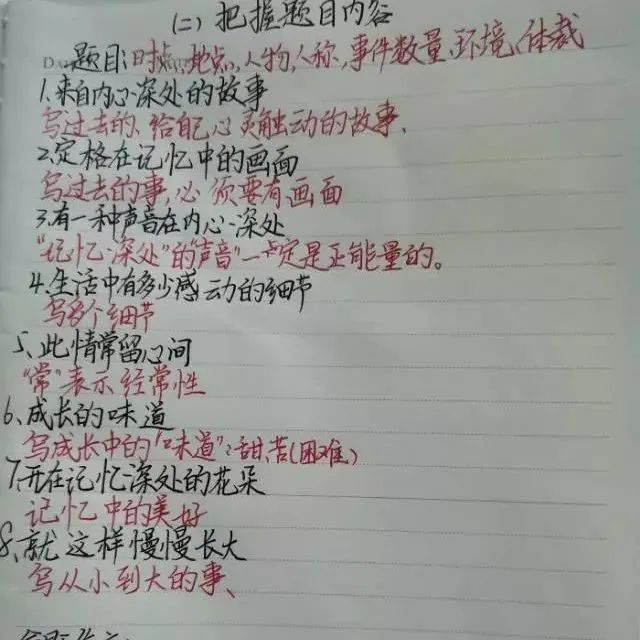 (二)把握题目内容
题目:时点,地点,人物,人称,事件数量,环境、体裁
1.来自内心深处的故事
写过去的、给自己心灵触动的故事、
2.定格在记忆中的画面
写过去的事,必须要有画面
3.有一种声音在内心深处
"记忆深处"的声音"一定是正能量的。
4.生活中有多少感动的细节
写多个细节
5、此情常留心间
"常"表示经常性
6、成长的味道
写成长中的"味道":甜、苦(困难)
7.开在记忆深处的花朵
记忆中的美好
8、就这样慢慢长大
写从小到大的事、